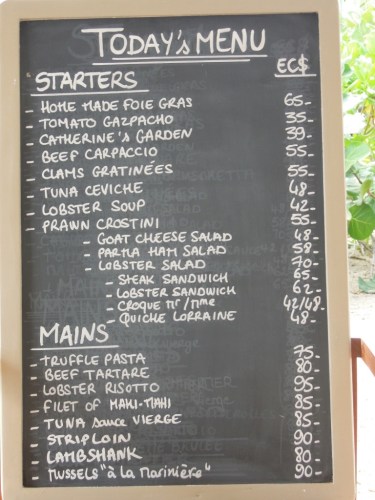 TODAY'S MENU
EC$
STARTERS
- HOME MADE FOIE GRAS 65-
- TOMATO GAZPACHO 35-
- CATHERINE'S GARDEN 39-
- BEEF CARPACCIO 55-
- CLAMS GRATINÉES 55-
- TUNA CEVICHE 48-
- LOBSTER SOUP 42-
- PRAWN CROSTINI 55-
- GOAT CHEESE SALAD 48-
- PARMA HAM SALAD 58-
- LOBSTER SALAD 70-
- STEAK SANDWICH 65-
- LOBSTER SANDWICH 62-
- CROQUE Mr/Mme 42/48-
- QUICHE LORRAINE 48-
MAINS
- TRUFFLE PASTA 75-
- BEEF TARTARE 80-
- LOBSTER RISOTTO 95-
- FILET OF MAHI-MAHI 85-
- TUNA sauce VIERGE 85-
- STRIPLOIN 90-
- LAMBSHANK 80-
- MUSSELS "à La Marinière" 90-